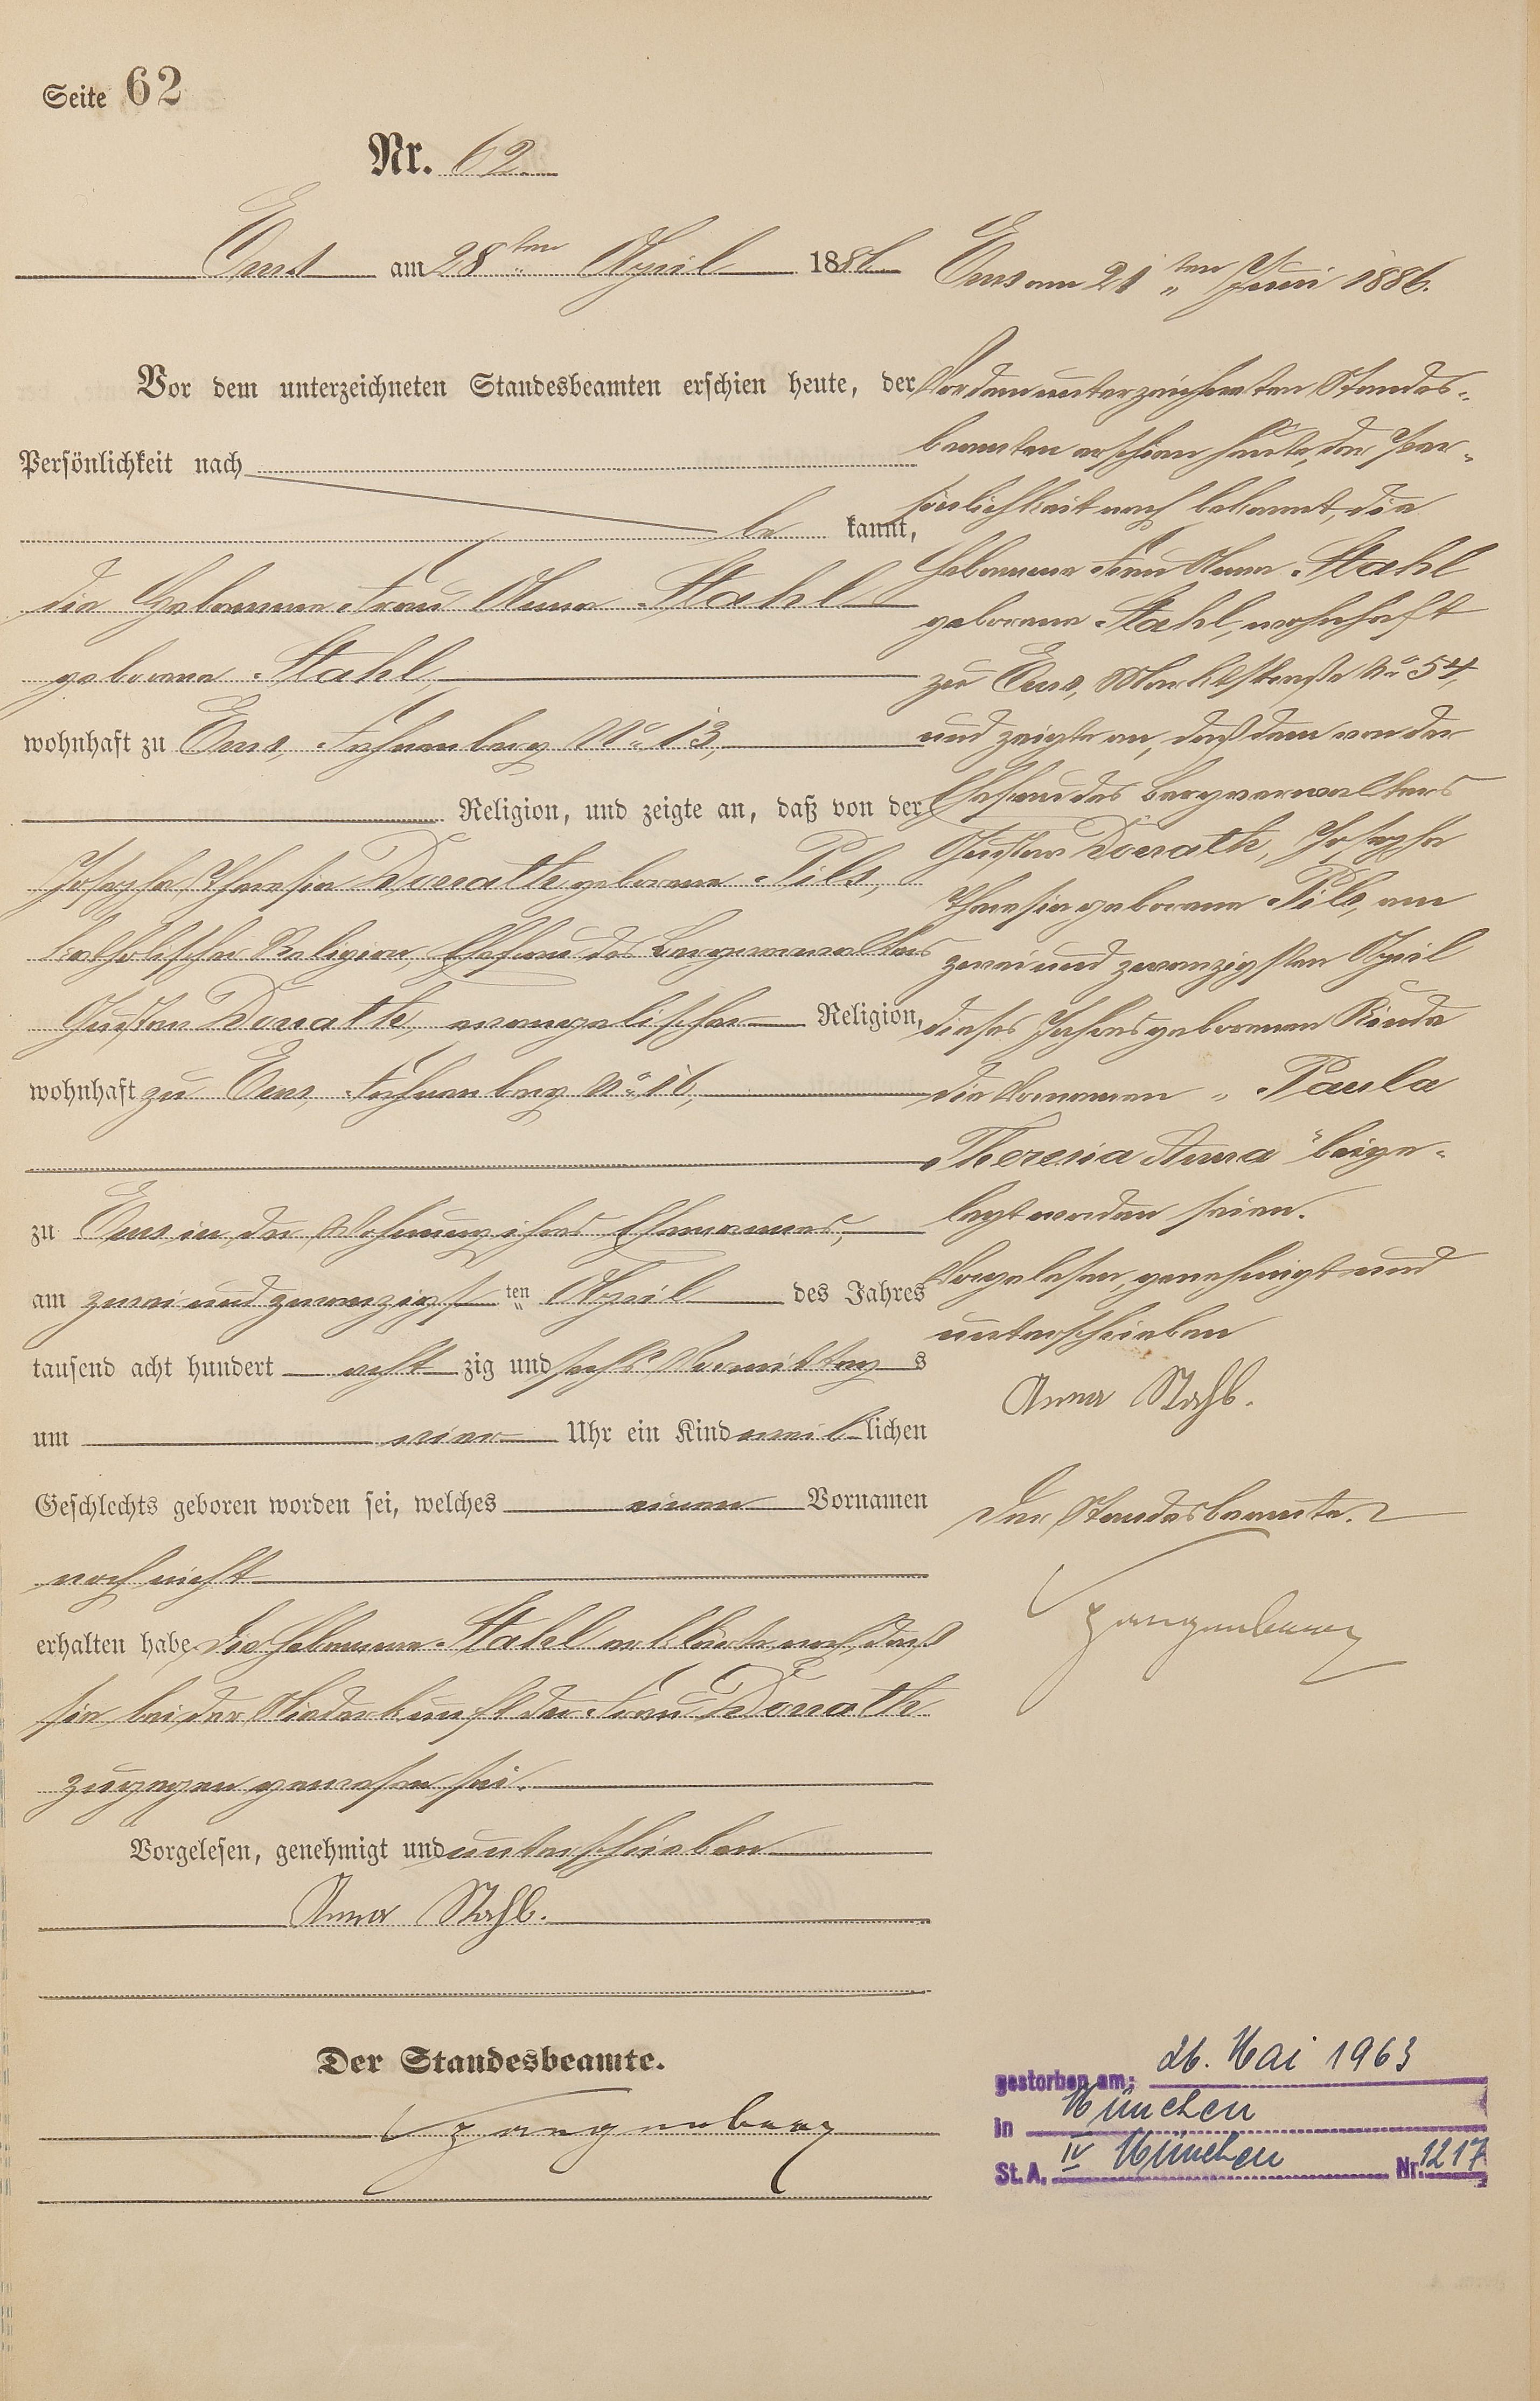 Seite 62
Nr. 62
Ems am 28ten April 1886
Vor dem unterzeichneten Standesbeamten erschien heute, der
Persönlichkeit nach
be kannt,
die Hebamme Frau Anna Stahl
geborene Stahl,
wohnhaft zu Ems, Fahnenberg No 13,
Religion, und zeigte an, daß von der
Josepha Theresia Donath geborene Pils,
katholischer Religion, Ehefrau des Bergverwalters
Gustav Donath, evangelischer Religion,
wohnhaft zu Ems, Fahnenberg No 16,
zu Ems in der Wohnung ihres Ehemannes,
am zwei und zwanzigsten April des Jahres
tausend acht hundert acht zig und sechs Vormittags
um vier Uhr ein Kind weiblichen
Geschlechts geboren worden sei, welches einen Vornamen
noch nicht
erhalten habe. Die Hebamme Stahl erklärte noch, daß
sie bei der Niederkunft der Frau Donath
zugegen gewesen sei.
Vorgelesen, genehmigt und unterschrieben
Anna Stahl.
Der Standesbeamte.
Ems am 21ten Juni 1886.
Vor dem unterzeichneten Standes-
beamten erschien heute, der Per-
sönlichkeit nach bekannt, die
Hebamme Frau Anna Stahl
geborene Stahl, wohnhaft
zu Ems, Marktstraße No 54,
und zeigte an, daß dem von der
Ehefrau des Bergverwalters
Gustav Donath, Josepha
Theresia geborene Pils, am
zwei und zwanzigsten April
dieses Jahres geborenen Kinde
die Vornamen „Paula
Theresia Anna" beige-
legt worden seien.
Vorgelesen, genehmigt und
unterschrieben
Anna Stahl.
Der Standesbeamte.
gestorben am: 26. Mai 1963
in München
St. A. IV München Nr. 1217